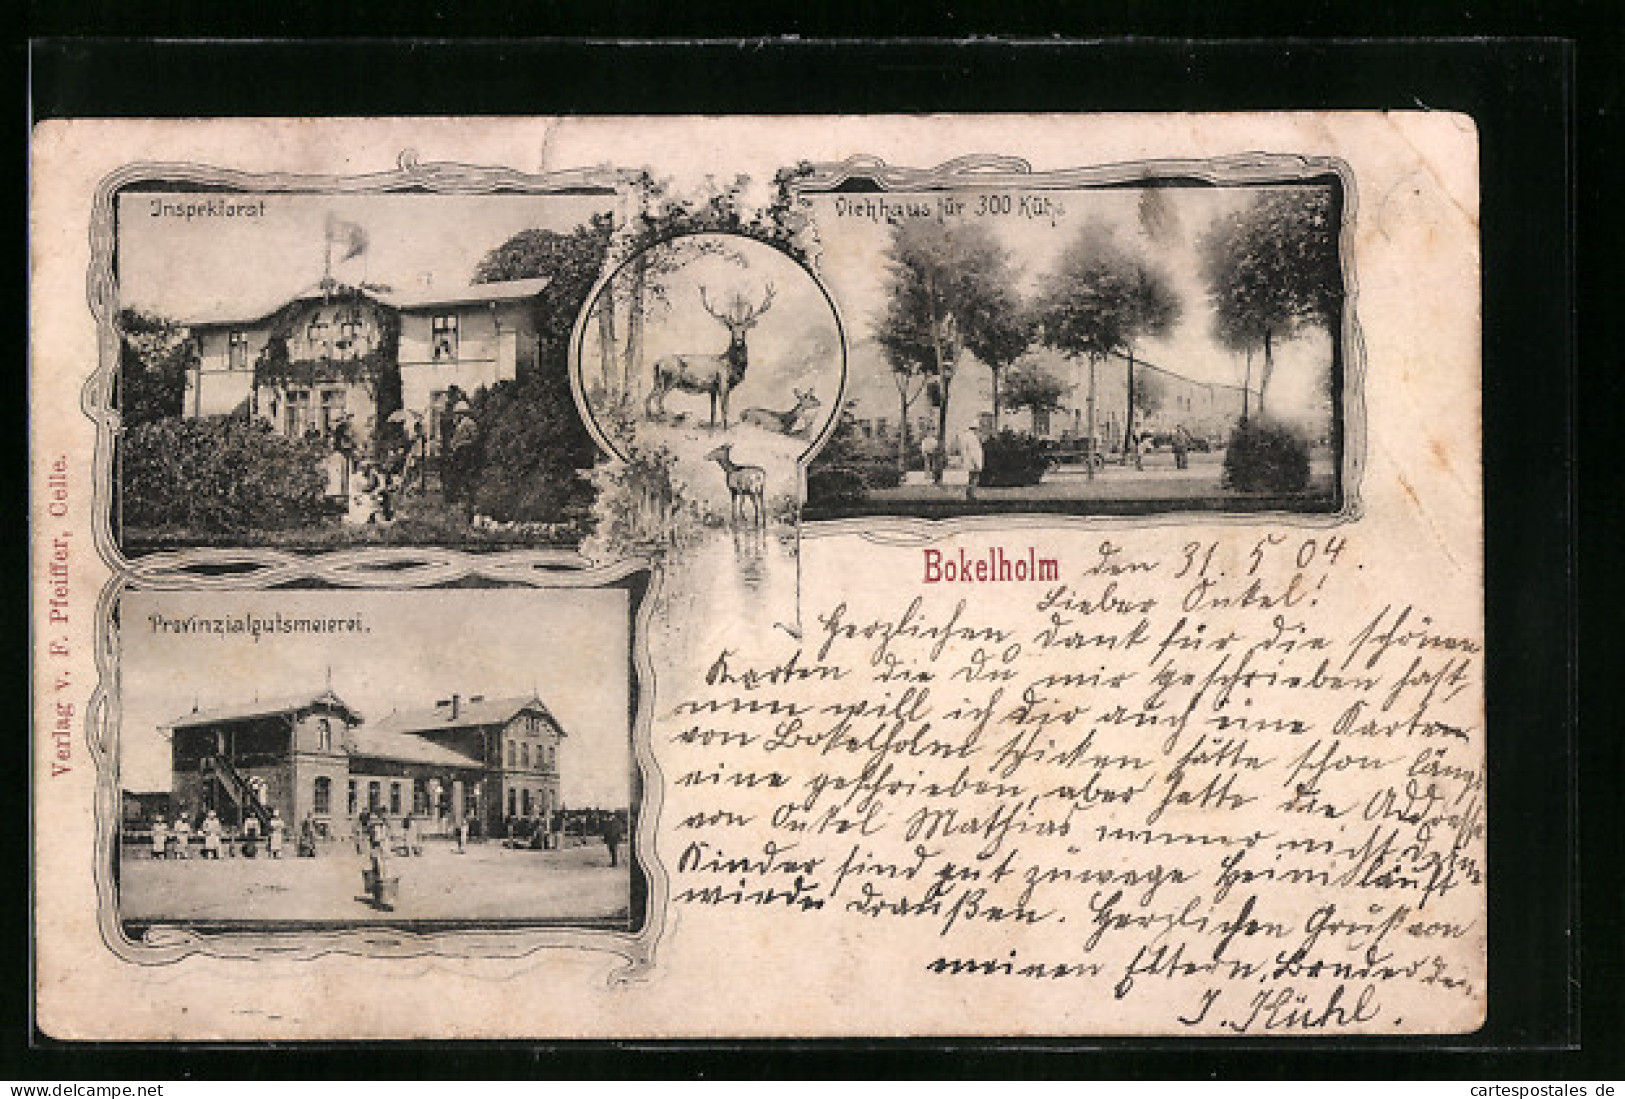 Inspektorat
Viehhaus für 300 Kühe
Provinzialgutsmeierei.
Verlag v. F. Pfeiffer, Celle.
Bokelholm den 31. 5 04.
Lieber Onkel!
Herzlichen Dank für die schönen
Karten die Du mir geschrieben hast,
nun will ich Dir auch eine Karte
von Bokelholm schicken, hätte schon längs
eine geschrieben, aber hatte die Addresse
von Onkel Mathias immer nicht. Deine
Kinder sind gut zuwege Heini läuft
wieder draußen. Herzlichen Gruß von
meinen Eltern, Bruder
J. Kühl.
Ak-ansichtskarten.de
cartespostales de